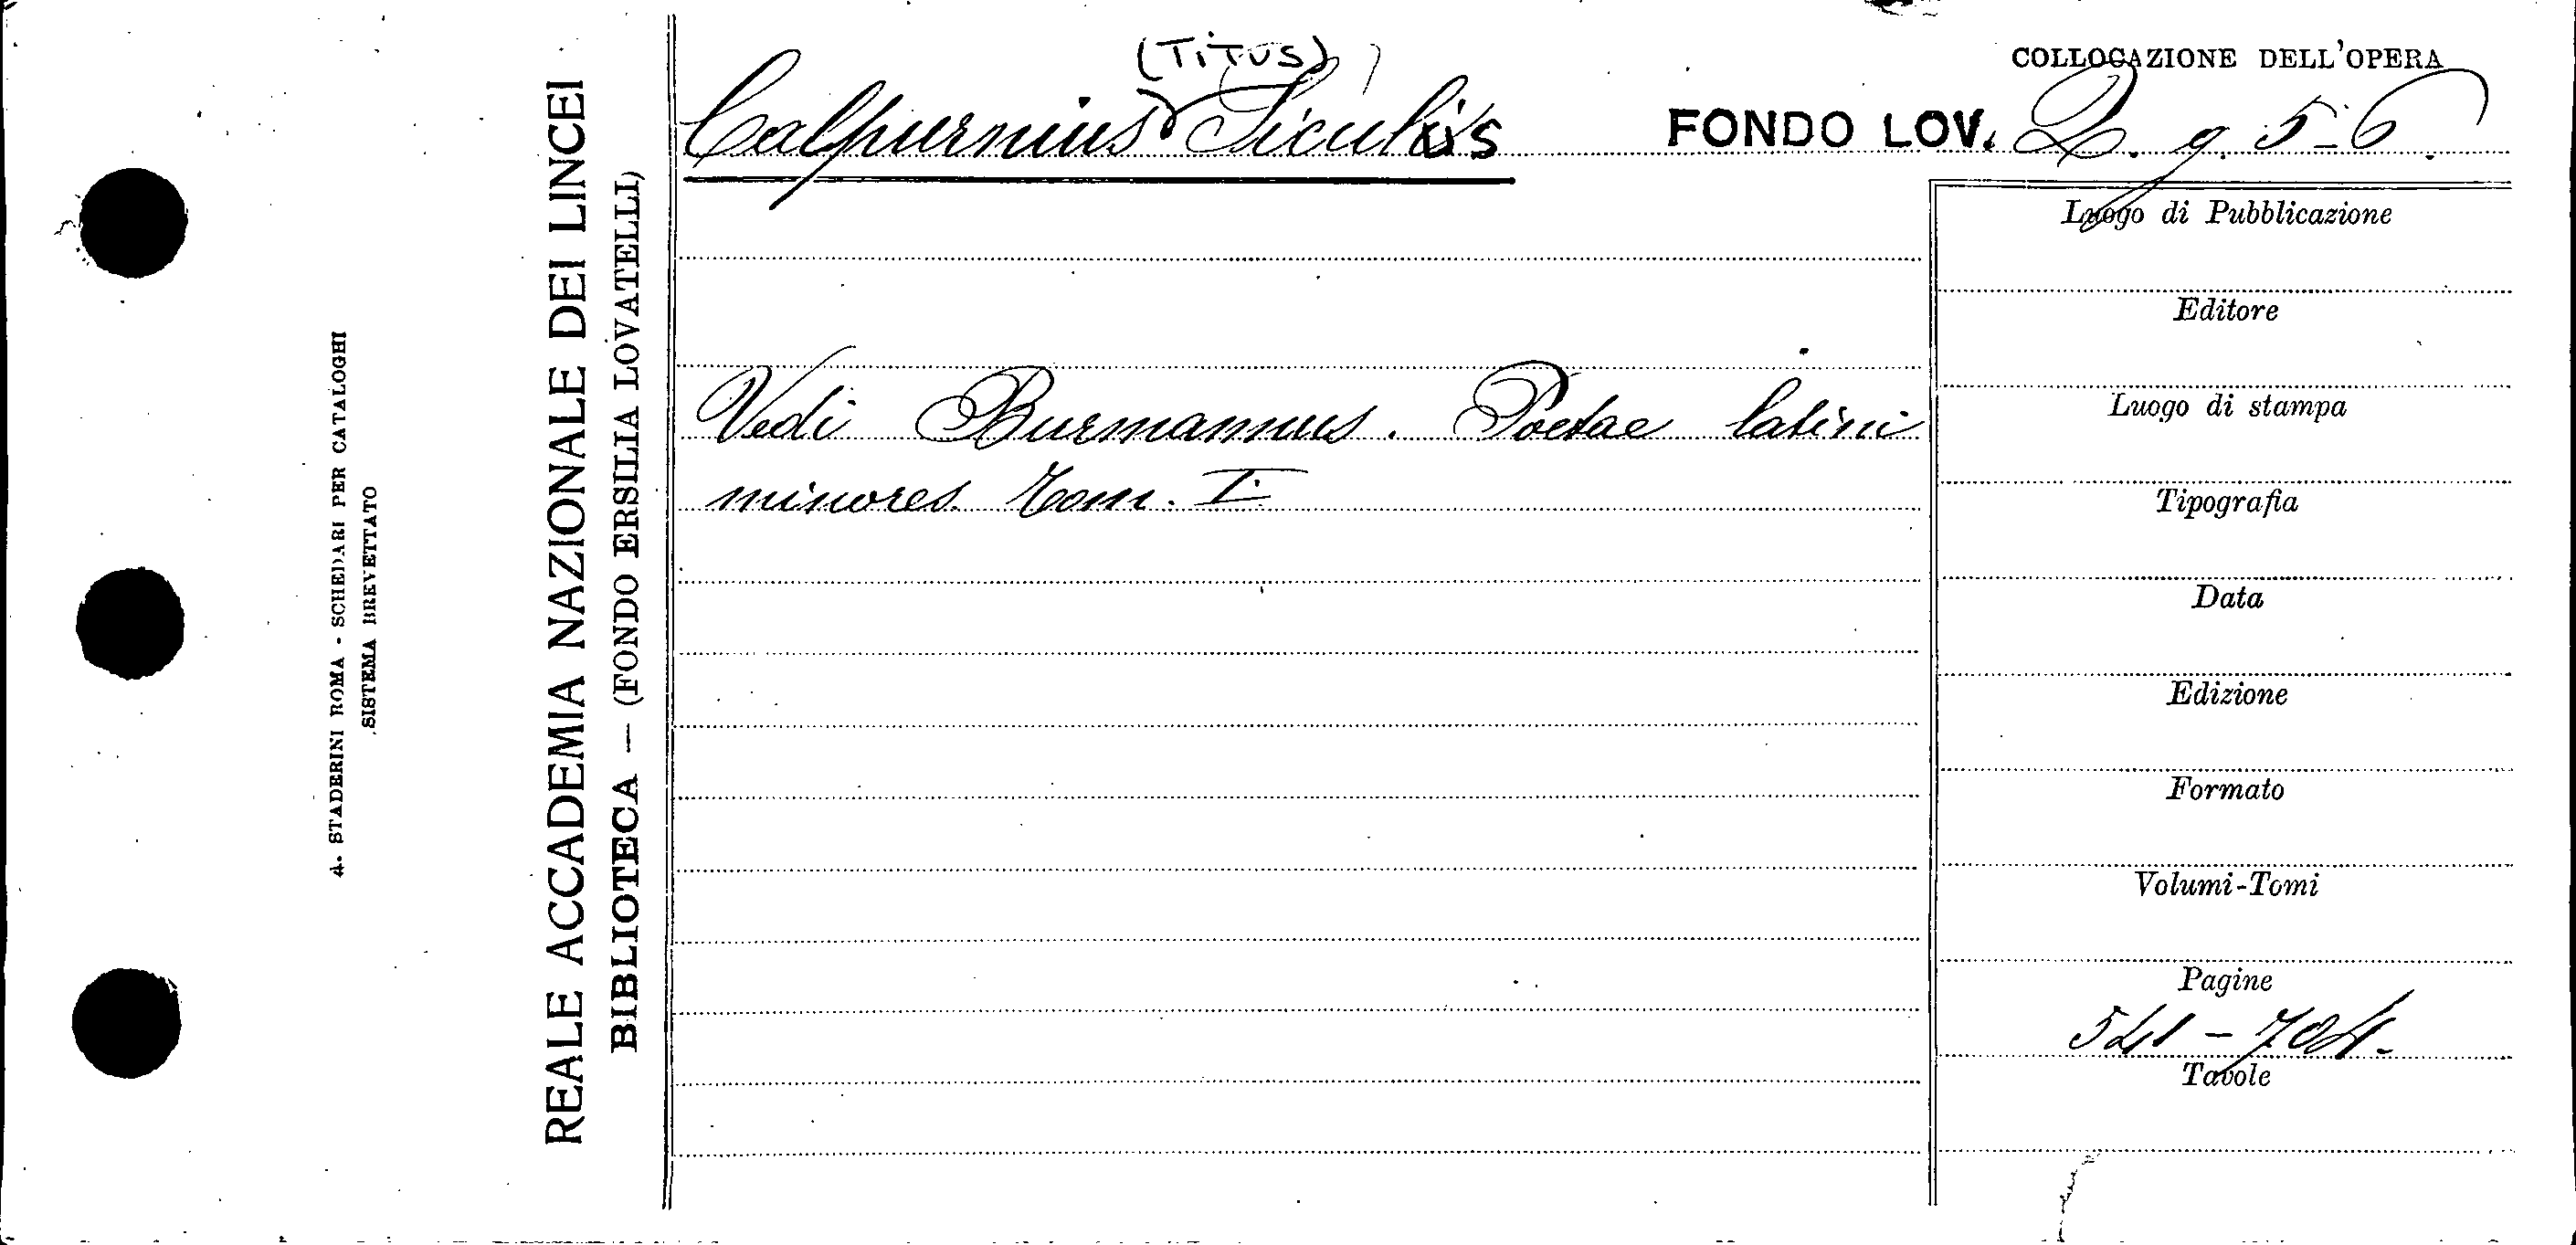 4. STADERINI ROMA - SCHEDARI PER CATALOGHI
SISTEMA BREVETTATO
REALE ACCADEMIA NAZIONALE DEI LINCEI
BIBLIOTECA — (FONDO ERSILIA LOVATELLI)
(TiTUS)
Calpurnius Siculus
COLLOCAZIONE DELL'OPERA
FONDO LOV. Q. g. 5-6.
Vedi Burmannus. Poetae latini
minores. Tom. I.
Luogo di Pubblicazione
Editore
Luogo di stampa
Tipografia
Data
Edizione
Formato
Volumi-Tomi
Pagine
541 - 704.
Tavole